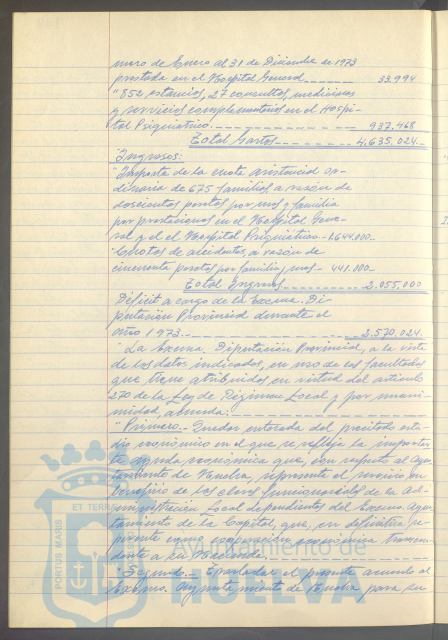 mero de Enero al 31 de Diciembre de 1973
prestada en el Hospital General 33.994
"852 estancias, 27 consultas, medicinas
y servicios complementarios en el Hospi-
tal Psiquiátrico. 937.468
Total Gastos 4.635.024.-
"Ingresos:
"Importe de la cuota asistencial or-
dinaria de 675 familias a razón de
doscientas pesetas por mes y familia
por prestaciones en el Hospital Gene-
ral y el Hospital Psiquiátrico - 1.644.000.-
"Cuotas de accidentes, a razón de
cincuenta pesetas por familia y mes - 441.000.-
Total Ingresos 2.055.000
Déficit a cargo de la Excma. Di-
putación Provincial durante el
año 1973. 2.570.024.
"La Excma. Diputación Provincial, a la vista
de los datos indicados, en uso de las facultades
que tiene atribuidas en virtud del artículo
270 de la Ley de Régimen Local y por unani-
midad, acuerda:
"Primero.- Quedar enterada del precitado estu-
dio económico en el que se refleja la importan-
te ayuda económica que, con respecto al Ayun-
tamiento de Huelva, representa el mismo en
beneficio de las clases funcionariales de la Ad-
ministración Local dependientes del Excmo. Ayun-
tamiento de la Capital, que, en definitiva re-
presenta una cooperación económica
a su Hacienda.
"Segundo.- Trasladar el presente acuerdo al
Excmo. Ayuntamiento de Huelva para su
PORTUS MARIS
ET TERRAE
Ayuntamiento de
HUELVA